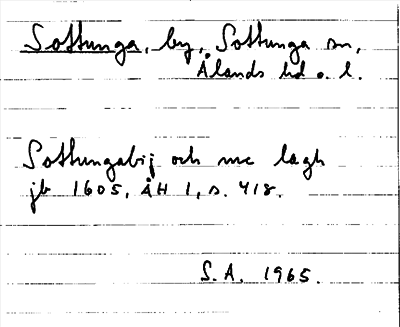 Sottunga, by, Sottunga sn,
Ålands hd o. l.
Sottungabij och me lagh
jb 1605, ÅH 1, s. 418.
S. A. 1965.